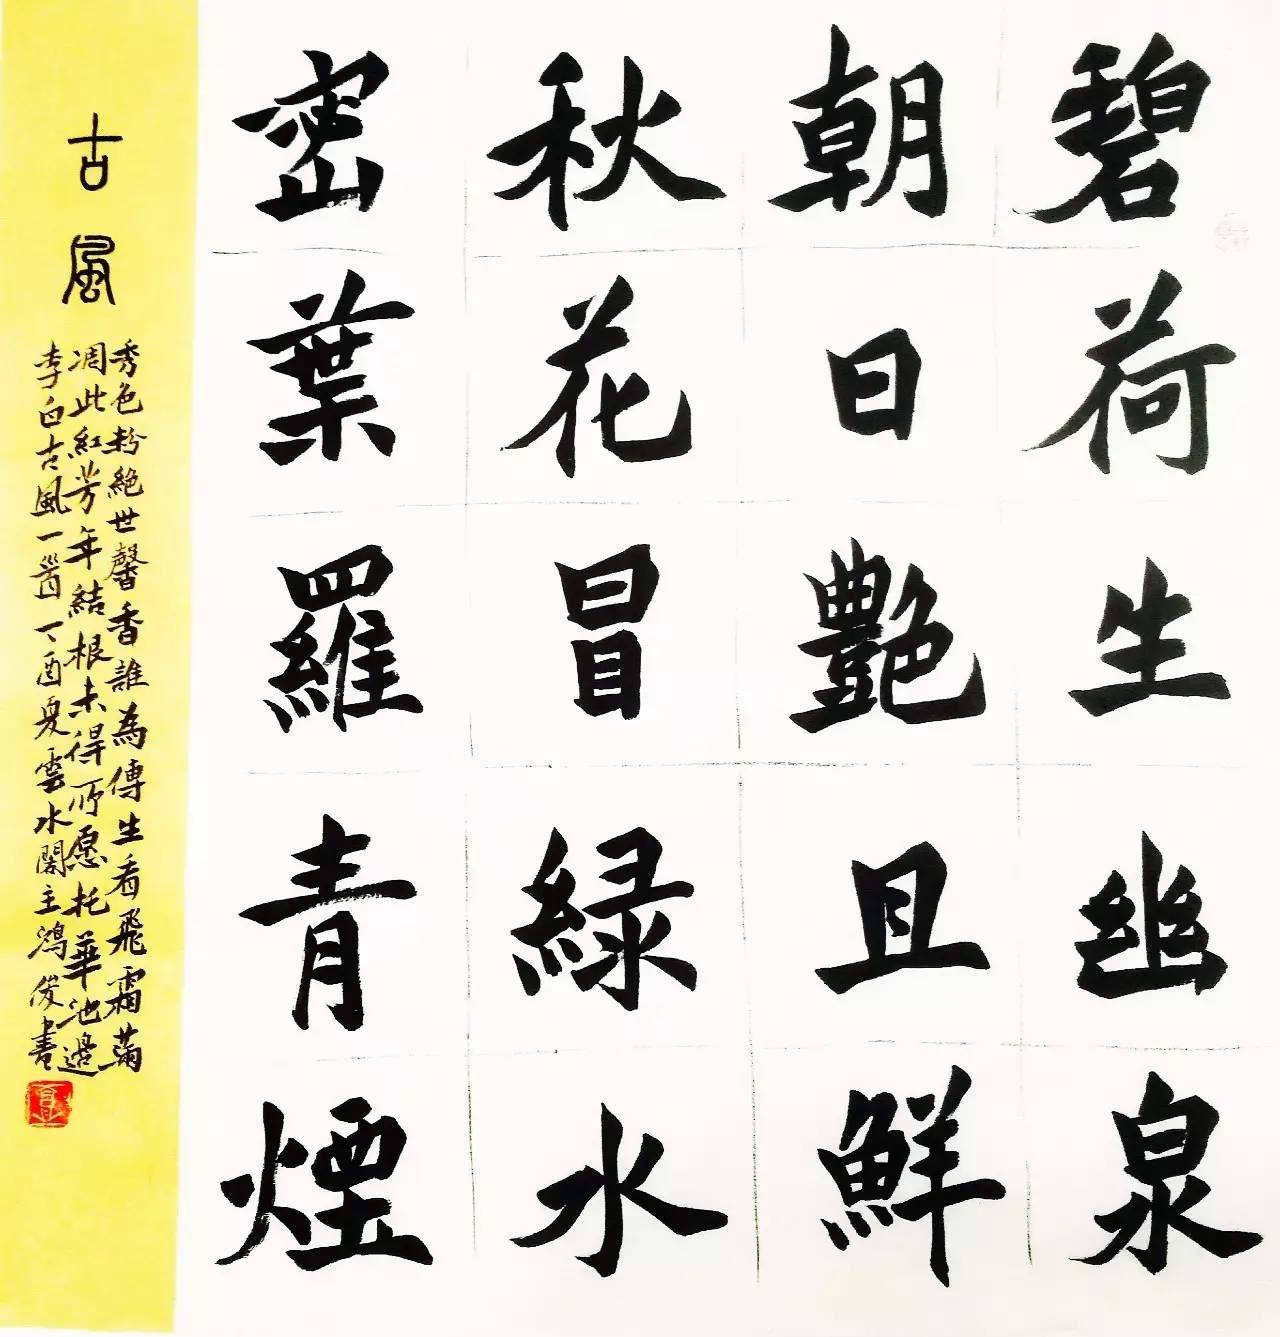 碧荷生幽泉
朝日艷且鮮
秋花冒緑水
密葉羅青煙
古風
秀色粉絕世馨香誰為傳生看飛霜滿
凋此紅芳年結根未得所愿托華池邊
李白古風一首丁酉夏雲水閣主鴻俊書